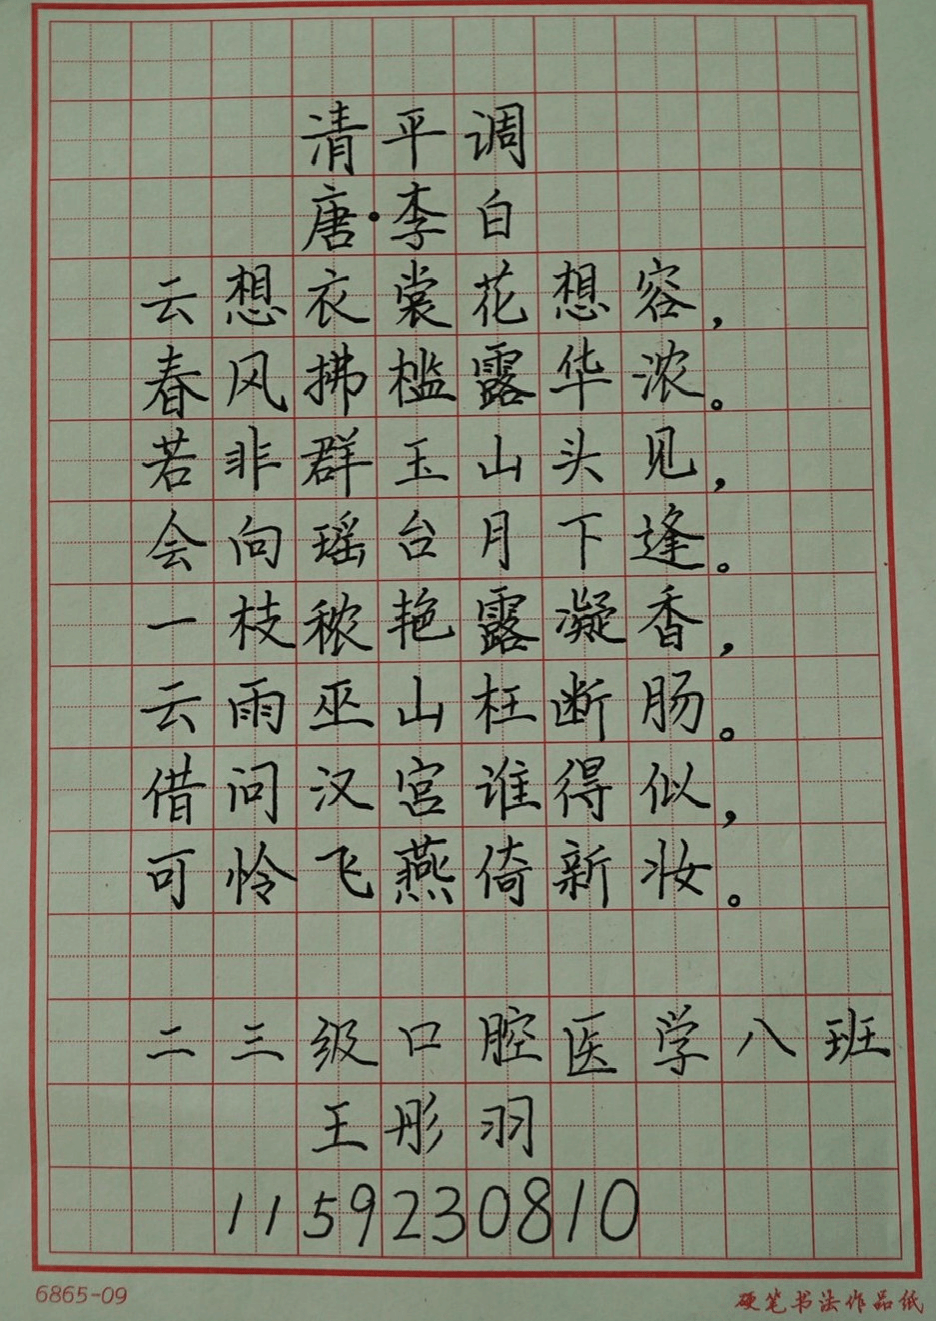 清平调
唐·李白
云想衣裳花想容，
春风拂槛露华浓。
若非群玉山头见，
会向瑶台月下逢。
一枝秾艳露凝香，
云雨巫山枉断肠。
借问汉宫谁得似，
可怜飞燕倚新妆。
二三级口腔医学八班
王彤羽
11592308​10
6865-09
硬笔书法作品纸